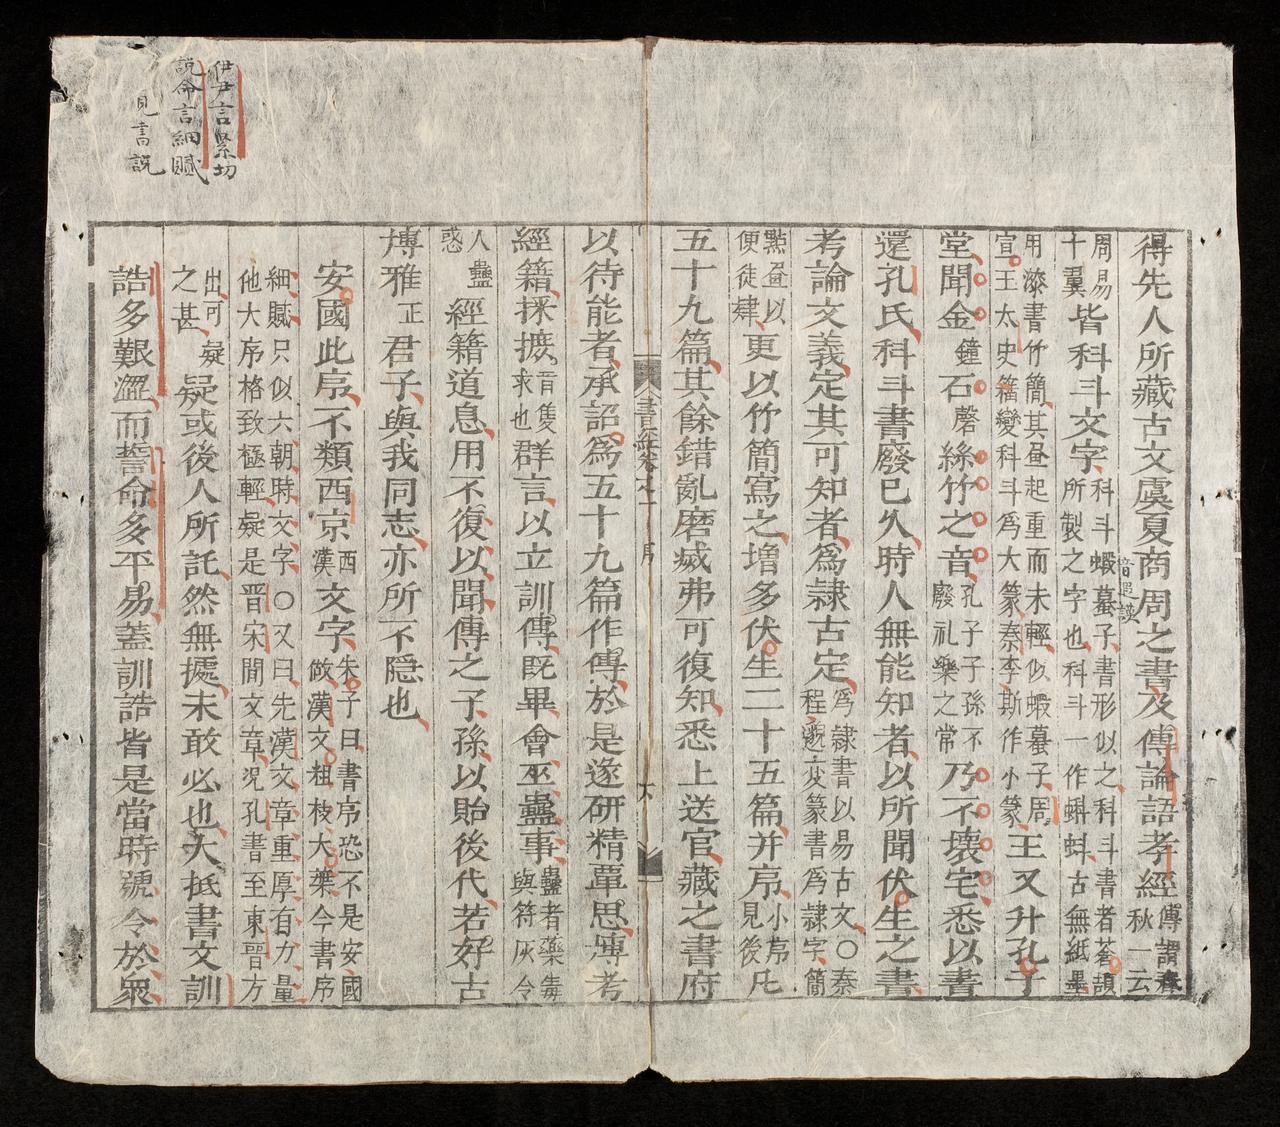 伊尹言緊切
説命言細膩
見書説
得先人所藏古文虞夏商周之書及傳論語孝經傳謂春秋一云
音遐謨
周易十翼皆科斗文字科斗蝦蟇子書形似之科斗書者蒼頡所製之字也科斗一作蝌蚪古無紙墨
用漆書竹簡其畫起重而未輕似蝦蟇子周宣王太史籀變科斗爲大篆秦李斯作小篆王又升孔子
堂聞金鐘石磬絲竹之音孔子子孫不廢礼樂之常乃不壞宅悉以書
還孔氏科斗書廢已久時人無能知者以所聞伏生之書
考論文義定其可知者爲隷古定爲隷書以易古文〇秦程邈变篆書爲隷字簡
點畫以便徒肄更以竹簡寫之增多伏生二十五篇并序小序見後凡
五十九篇其餘錯亂磨滅弗可復知悉上送官藏之書府
書經卷之一 序 六
以待能者承詔爲五十九篇作傳於是遂研精覃思博考
經籍採摭音隻求也群言以立訓傳既畢會巫蠱事蠱者藥毒與符灰令
人蠱惑經籍道息用不復以聞傳之子孫以貽後代若好古
博雅正君子與我同志亦所不隠也
安國此序不類西京西漢文字朱子曰書序恐不是安國倣漢文粗枝大葉今書序
細膩只似六朝時文字〇又曰先漢文章重厚有力量他大序格致極輕疑是晋宋間文章况孔書至東晋方
出可疑之甚疑或後人所託然無據未敢必也大抵書文訓
誥多艱澀而誓命多平易蓋訓誥皆是當時號令於衆